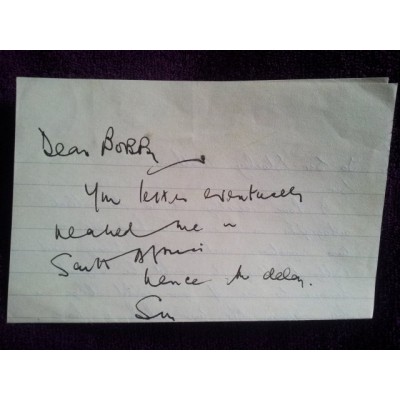 Dear BOBBY
Your letter eventually
reached me in
South Africa
hence the delay.